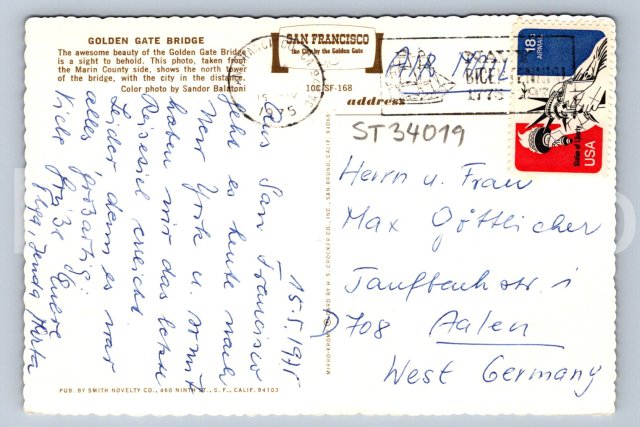 GOLDEN GATE BRIDGE
The awesome beauty of the Golden Gate Bridge
is a sight to behold. This photo, taken from
the Marin County side, shows the north tower
of the bridge, with the city in the distance.
Color photo by Sandor Balatoni
SAN FRANCISCO
the City by the Golden Gate
10C-SF-168
address
AIR MAIL
1975
1776
18c
AIRMAIL
Statue of Liberty
USA
ST34019
15.5.1975
Aus San Francisco
geht es heute nach
New York u. somit
haben wir das letzte
Reiseziel erreicht.
Leider, denn es war
alles großartig!
Viele Grüße Euere
Herta
Herrn u. Frau
Max Göttlicher
Taufbachstr. 1
D 708 Aalen
West Germany
MIRRO-KROME CARD BY H. S. CROCKER CO., INC., SAN BRUNO, CALIF. 94066
PUB. BY SMITH NOVELTY CO., 460 NINTH ST., S. F., CALIF. 94103